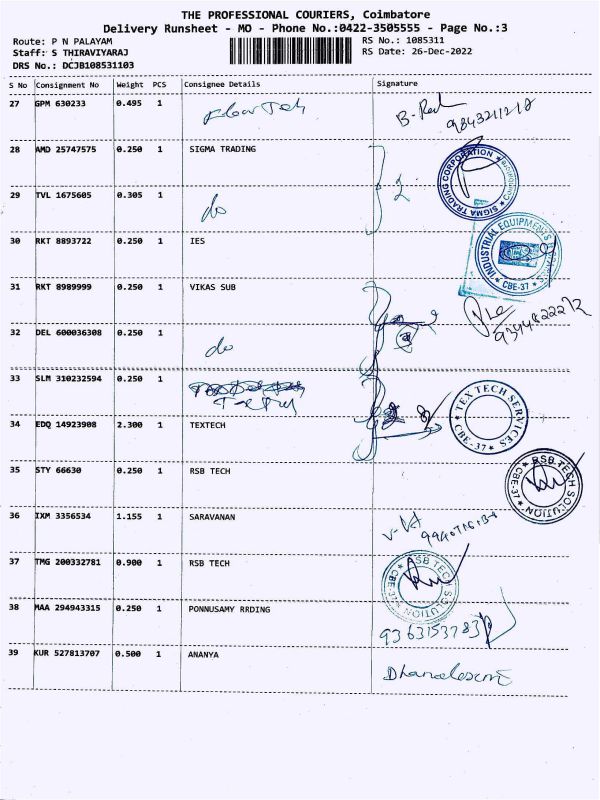 THE PROFESSIONAL COURIERS, Coimbatore
Delivery Runsheet - MO - Phone No.:0422-3505555 - Page No.:3
Route: P N PALAYAM
RS No.: 1085311
Staff: S THIRAVIYARAJ
RS Date: 26-Dec-2022
DRS No.: DCJB108531103
S No Consignment No Weight PCS Consignee Details Signature
27 GPM 630233 0.495 1
28 AMD 25747575 0.250 1 SIGMA TRADING
SIGMA TRADING CORPORATION
29 TVL 1675605 0.305 1 do 2
30 RKT 8893722 0.250 1 IES
INDUSTRIAL EQUIPMENTS
CBE-37
31 RKT 8989999 0.250 1 VIKAS SUB
32 DEL 600036308 0.250 1 do
33 SLM 310232594 0.250 1
34 EDQ 14923908 2.300 1 TEXTECH
TEX TECH SERVICES
CBE-37
35 STY 66630 0.250 1 RSB TECH
RSB TECH SOLUTION
CBE-37
36 IXM 3356534 1.155 1 SARAVANAN
37 TMG 200332781 0.900 1 RSB TECH
RSB TECH SOLUTION
CBE-37
38 MAA 294943315 0.250 1 PONNUSAMY RRDING
9363153783
39 KUR 527813707 0.500 1 ANANYA